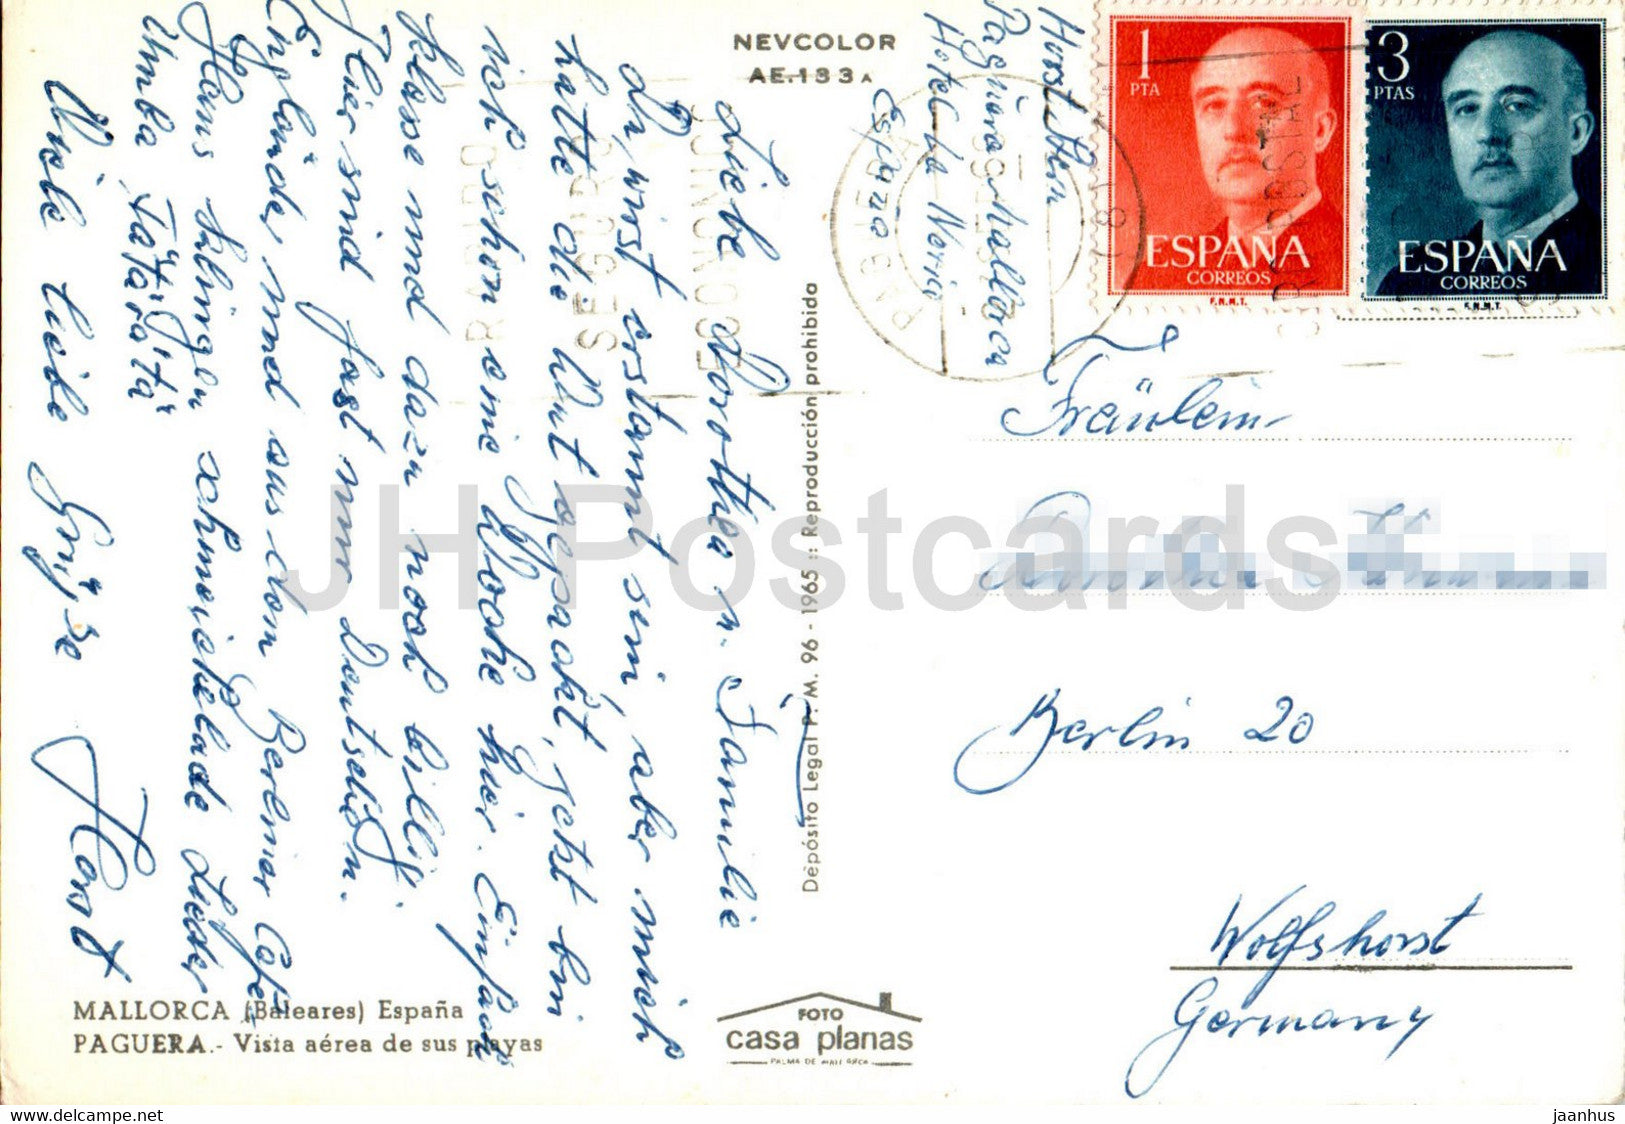 NEVCOLOR
AE.133A
Horst
Paguera Mallorca
Hotel La Noria
España
1
PTA
ESPAÑA
CORREOS
F.N.M.T.
3
PTAS
ESPAÑA
CORREOS
F.N.M.T.
PAGUERA
SEGURO
ECONOMICO
POSTAL
Liebe Dorothea u. Familie
Du wirst erstaunt sein, aber mich
hatte die Wut gepackt, jetzt bin
ich schon eine Woche hier. Einfach
klasse und dazu noch billig.
Hier sind fast nur Deutsche,
Engländer, und aus dem Berliner Cafe
Haus klingen schmeichelnde Lieder
Umba Tätärätä
Viele liebe Grüsse Horst
Depósito Legal P. M. 96 - 1965 :: Reproducción prohibida
Fräulein
Berlin 20
Wolfshorst
Germany
MALLORCA (Baleares) España
PAGUERA.- Vista aérea de sus playas
FOTO
casa planas
PALMA DE MALLORCA
JH Postcards
https://www.delcampe.net
jaanhus